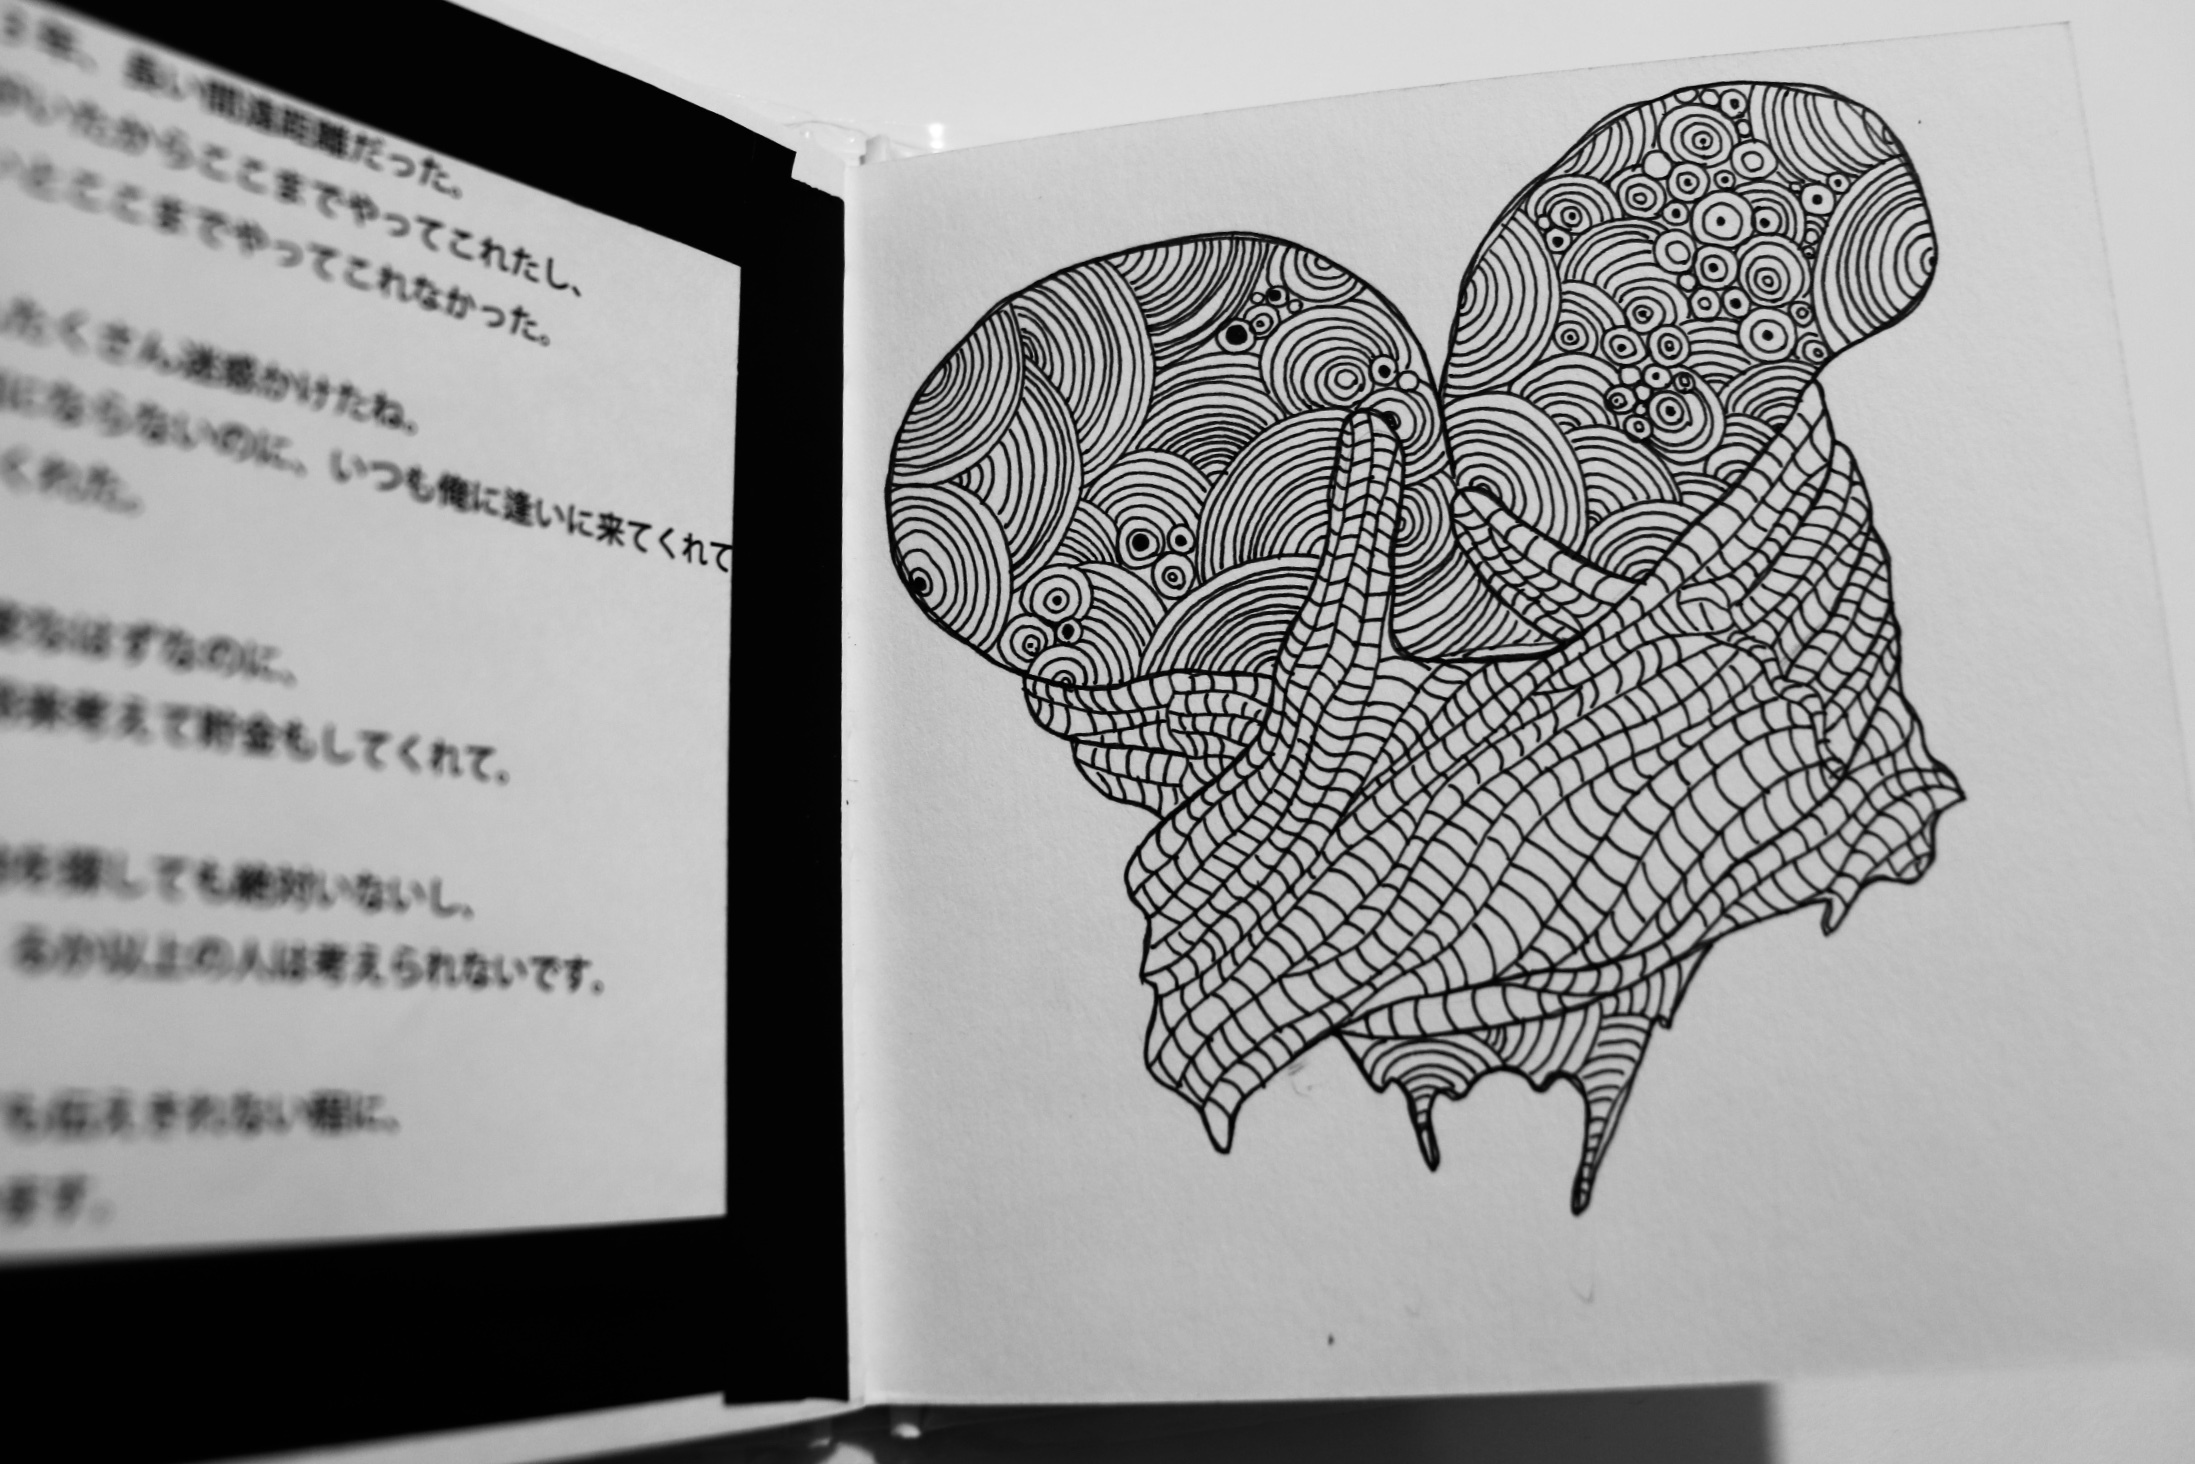 年、長い間遠距離だった。
がいたからここまでやってこれたし、
とここまでやってこれなかった。
たくさん迷惑かけたね。
にならないのに、いつも俺に逢いに来てくれて
くれた。
なはずなのに、
将来考えて貯金もしてくれて。
を探しても絶対いないし、
るか以上の人は考えられないです。
も伝えきれない程に、
ます。